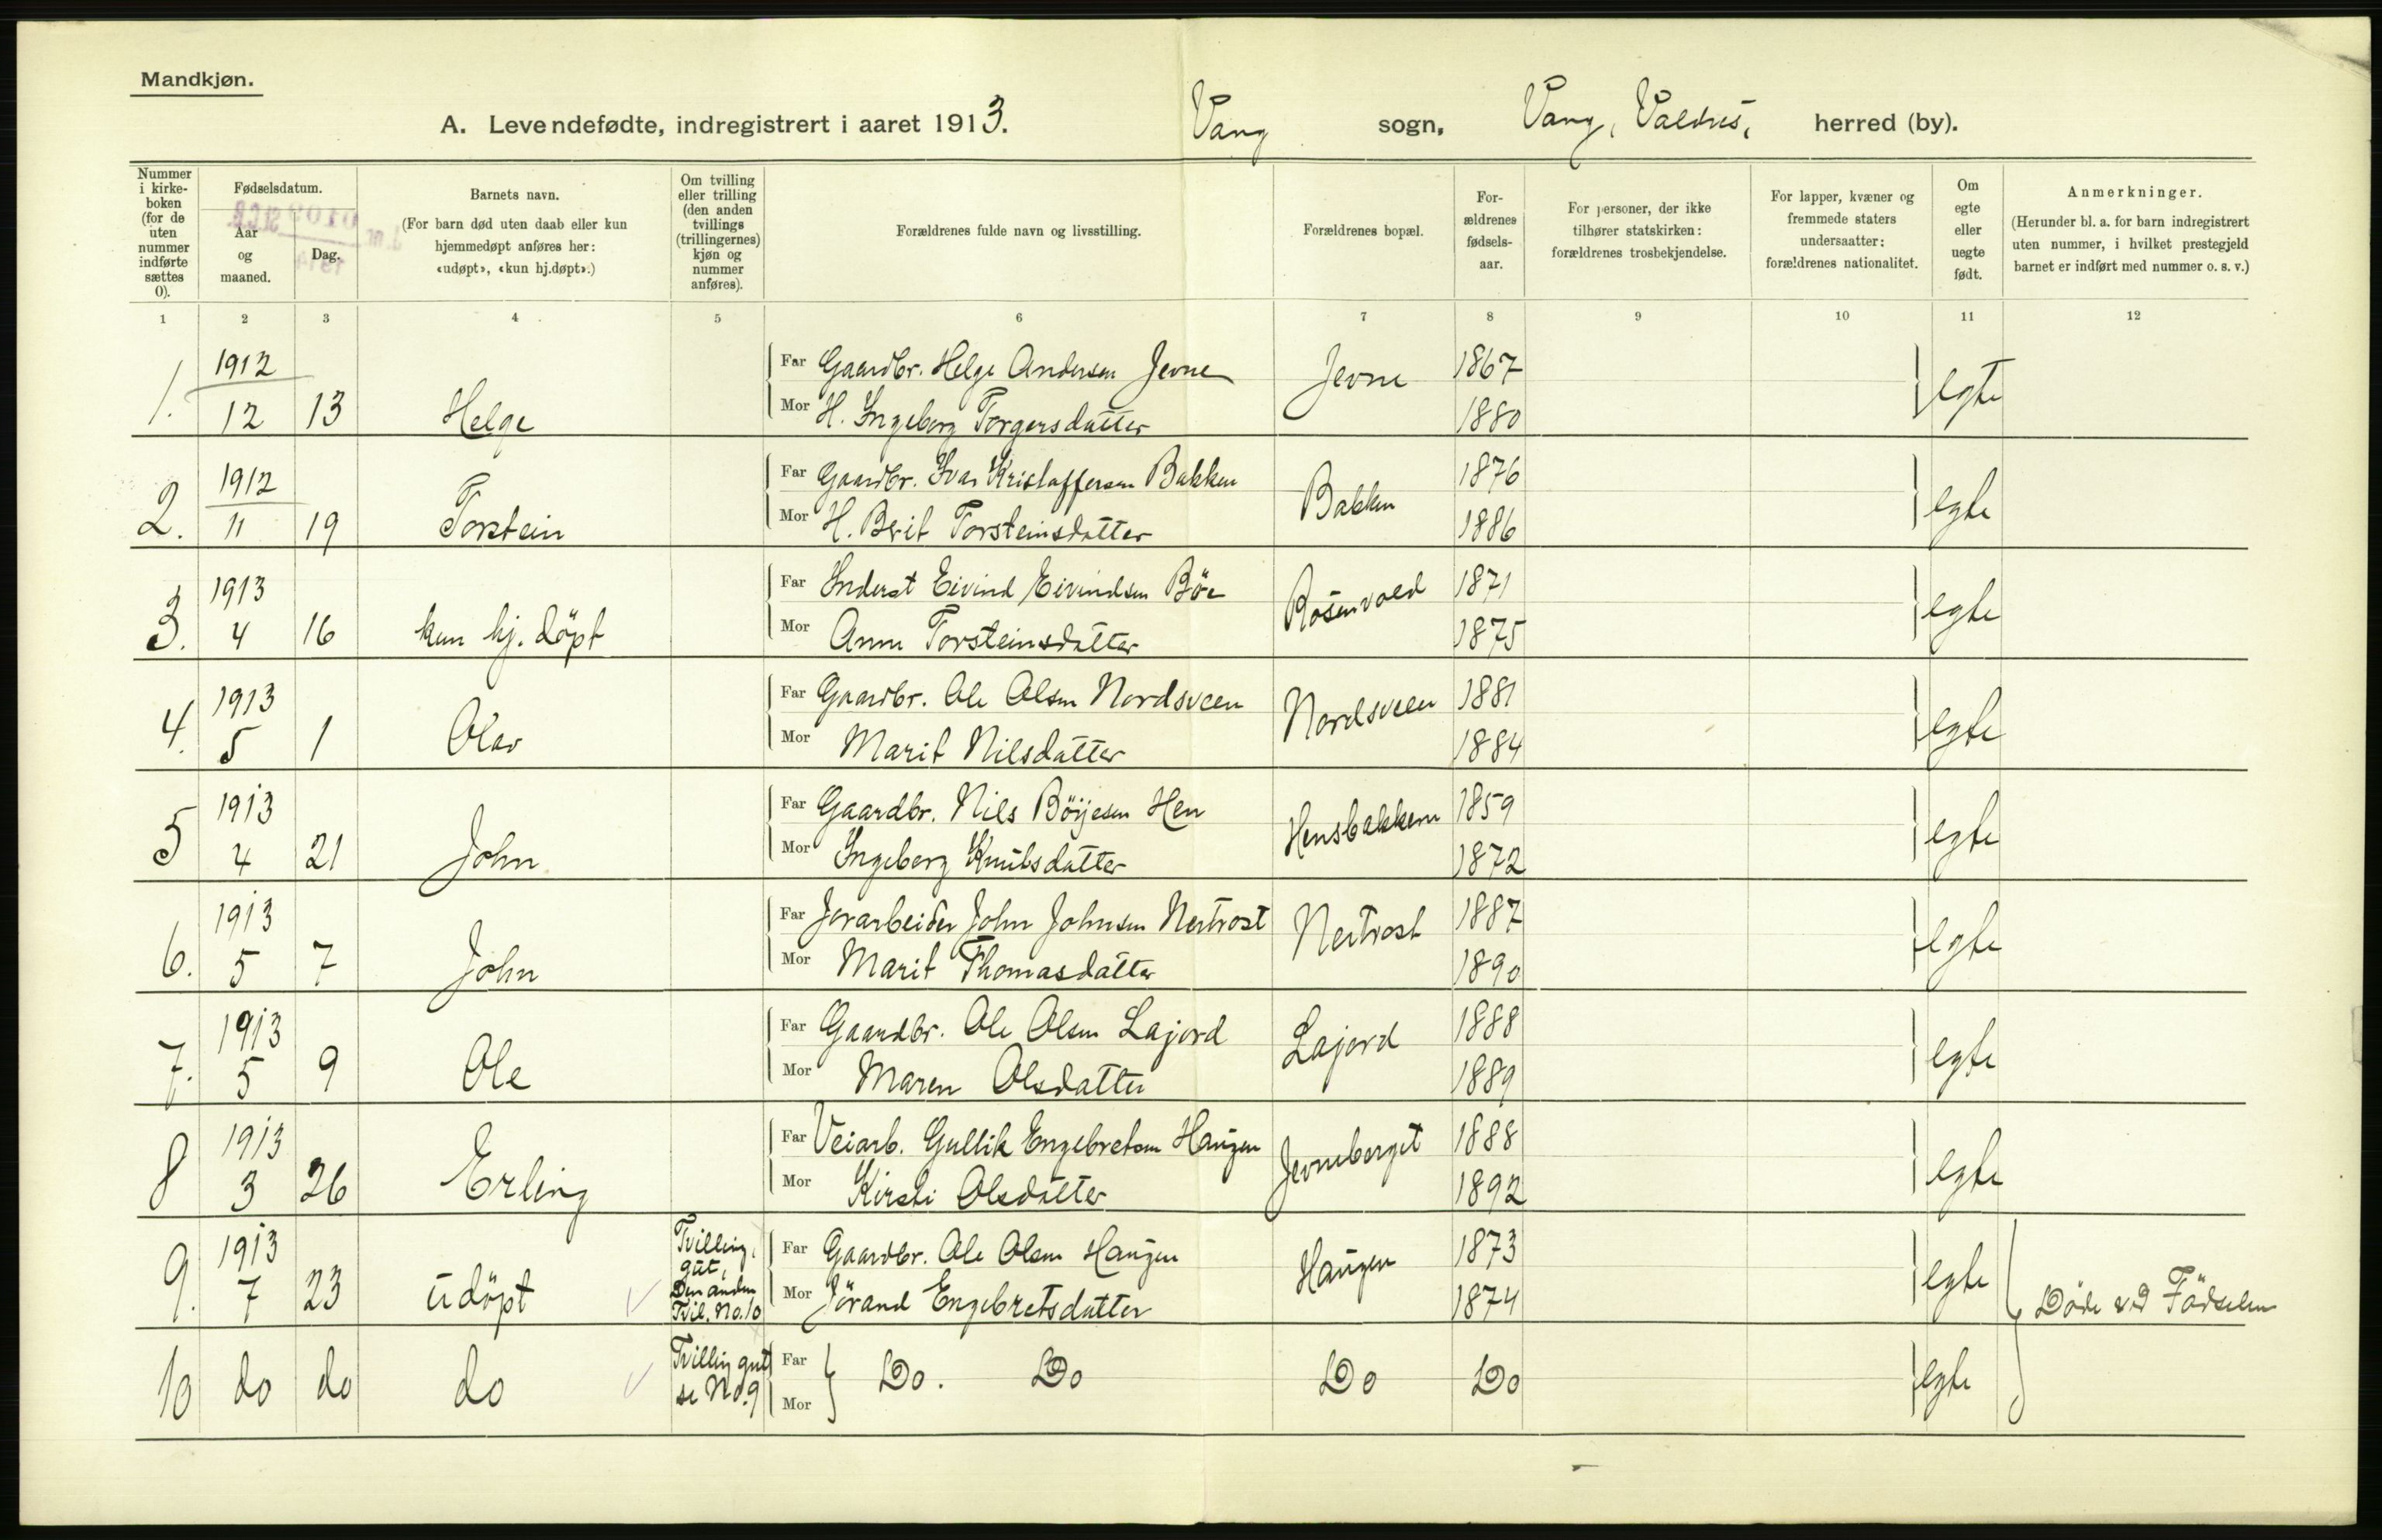 Mandkjøn.
A. Levendefødte, indregistrert i aaret 1913. Vang sogn, Vang, Valdres, herred (by).
Nummer i kirke-boken (for de uten nummer indførte sættes 0).
Fødselsdatum.
Aar og maaned.
Dag.
Barnets navn.
(For barn død uten daab eller kun hjemmedøpt anføres her: «udøpt», «kun hj.døpt».)
Om tvilling eller trilling (den anden tvillings (trillingernes) kjøn og nummer anføres).
Forældrenes fulde navn og livsstilling.
Forældrenes bopæl.
For-ældrenes fødsels-aar.
For personer, der ikke tilhører statskirken: forældrenes trosbekjendelse.
For lapper, kvæner og fremmede staters undersaatter: forældrenes nationalitet.
Om egte eller uegte født.
Anmerkninger.
(Herunder bl. a. for barn indregistrert uten nummer, i hvilket prestegjeld barnet er indført med nummer o. s. v.)
1 2 3 4 5 6 7 8 9 10 11 12
1. 1912 12 13 Helge Far Gaardbr. Helge Andersen Jevne Jevne 1867 egte
Mor H. Ingeborg Torgersdatter 1880
2. 1912 11 19 Torstein Far Gaardbr. Ivar Kristoffersen Bakken Bakken 1876 egte
Mor H. Berit Torsteinsdatter 1886
3. 1913 4 16 kun hj. döpt Far Inderst Eivind Eivindsen Böe Rosenvold 1871 egte
Mor Anne Torsteinsdatter 1875
4. 1913 5 1 Olav Far Gaardbr. Ole Olsen Nordsveen Nordsveen 1881 egte
Mor Marit Nilsdatter 1884
5 1913 4 21 John Far Gaardbr. Nils Böijesen Hen Hensbakken 1859 egte
Mor Ingeborg Knutsdatter 1872
6. 1913 5 7 John Far Jorarbeider John Johnsen Nertrost Nertrost 1887 egte
Mor Marit Thomasdatter 1890
7. 1913 5 9 Ole Far Gaardbr. Ole Olsen Lajord Lajord 1888 egte
Mor Maren Olsdatter 1889
8 1913 3 26 Erling Far Veiarb. Gullik Engebretsen Haugen Jevneberget 1888 egte
Mor Kirsti Olsdatter 1892
9. 1913 7 23 udöpt Tvilling, gut, Den anden Tvil. No. 10 Far Gaardbr. Ole Olsen Haugen Haugen 1873 egte Döde ved Födselen
Mor Jörand Engebretsdatter 1874
10 do do do Tvilling gut se No. 9 Far Mor Do. Do Do Do egte